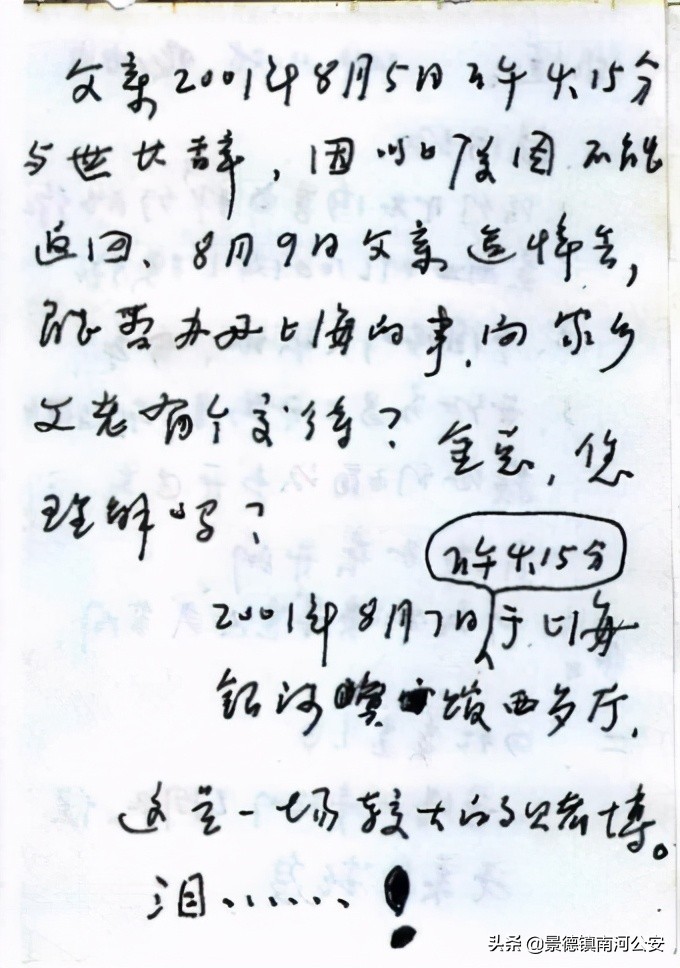 父亲2001年8月5日下午4.15分
与世长辞，因 不能
返回，8月9日父亲追悼会，
能否办好上海的事，向家乡
父老有个交待？全忘，您
理解吗？
下午4.15分
2001年8月7日于上海
银河宾 西多厅，
这是一场较大的赌博。
泪......！
头条@景德镇南河公安